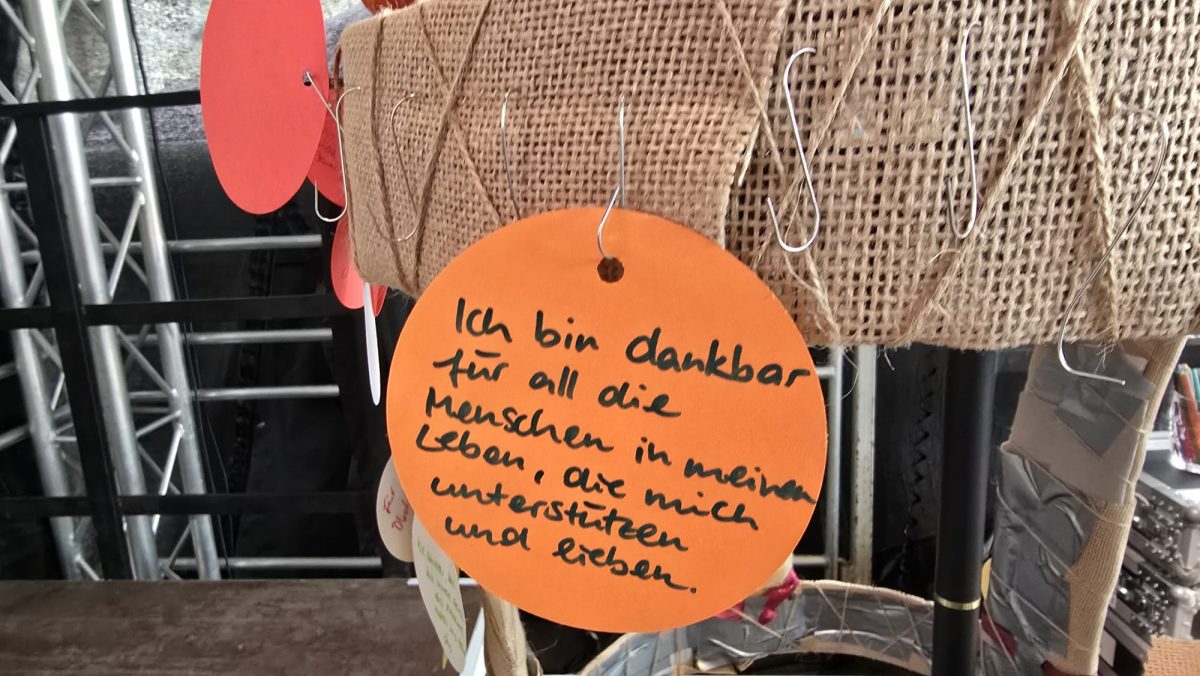 Ich bin dankbar
für all die
Menschen in meinem
Leben, die mich
unterstützen
und lieben.
Für